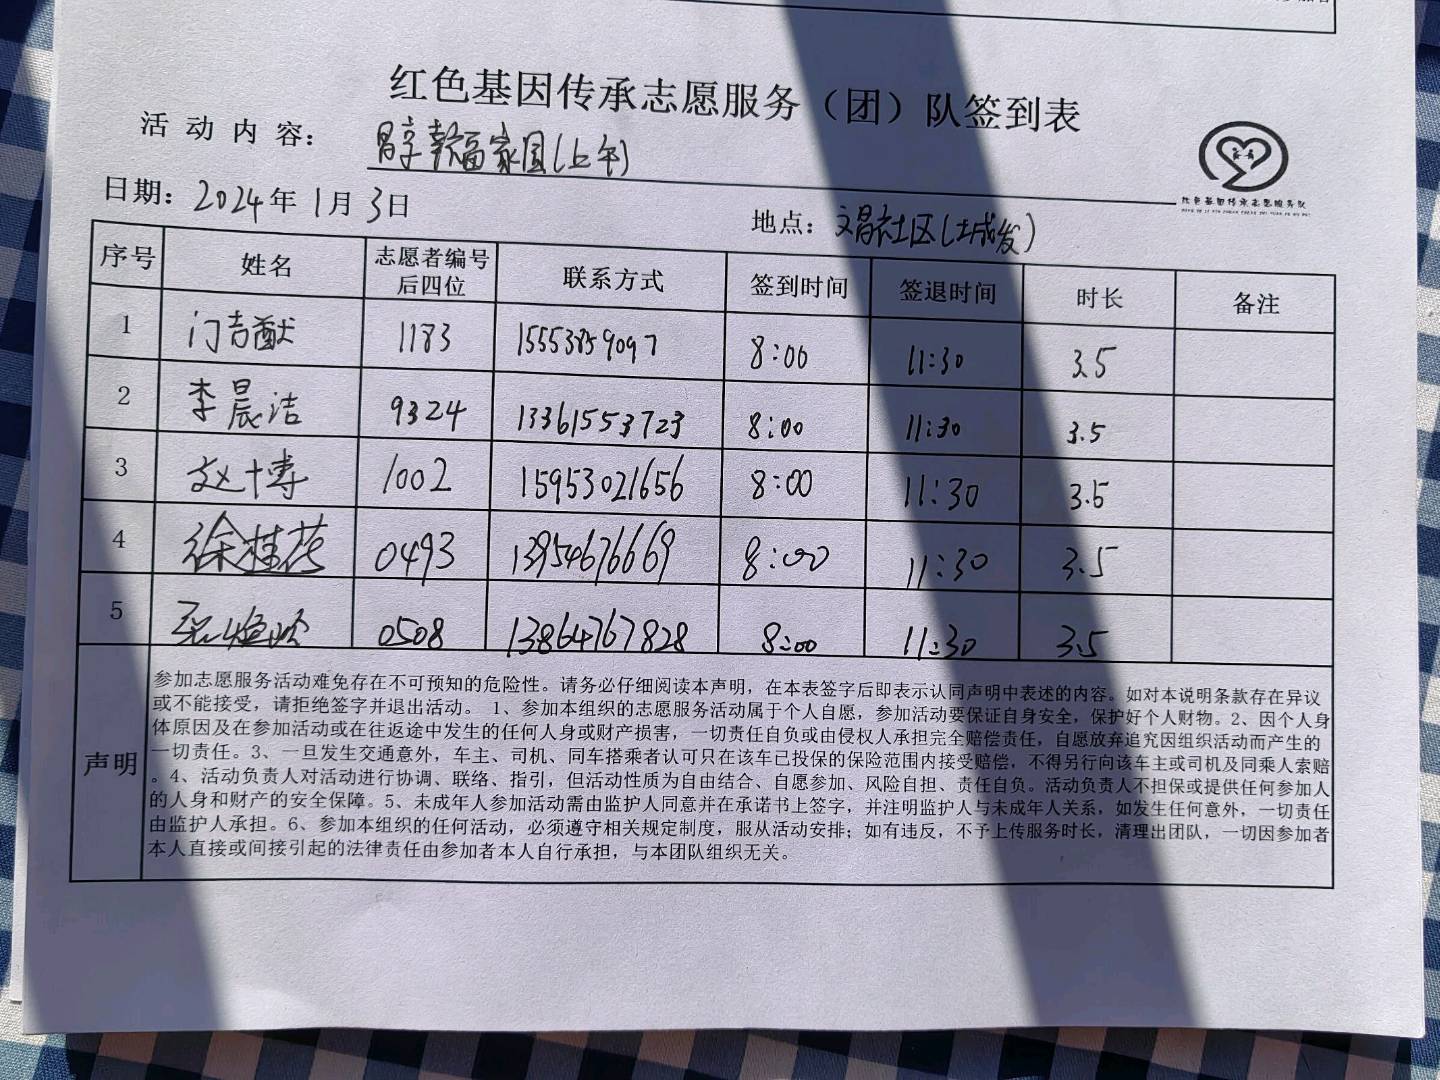 红色基因传承志愿服务（团）队签到表
活动内容： 昌享幸福家园(上午)
日期：2024年1月3日
地点：文昌社区(土城发)
红色基因传承志愿服务队
序号 姓名 志愿者编号后四位 联系方式 签到时间 签退时间 时长 备注
1 门吉猷 1183 15553859097 8:00 11:30 3.5
2 李晨洁 9324 13361553723 8:00 11:30 3.5
3 赵博 1002 15953021656 8:00 11:30 3.5
4 徐桂荷 0493 13954676669 8:00 11:30 3.5
5 0508 13864767828 8:00 11:30 3.5
声明
参加志愿服务活动难免存在不可预知的危险性。请务必仔细阅读本声明，在本表签字后即表示认同声明中表述的内容。如对本说明条款存在异议
或不能接受，请拒绝签字并退出活动。 1、参加本组织的志愿服务活动属于个人自愿，参加活动要保证自身安全，保护好个人财物。2、因个人身
体原因及在参加活动或在往返途中发生的任何人身或财产损害，一切责任自负或由侵权人承担完全赔偿责任，自愿放弃追究因组织活动而产生的
一切责任。3、一旦发生交通意外，车主、司机、同车搭乘者认可只在该车已投保的保险范围内接受赔偿，不得另行向该车主或司机及同乘人索赔
。4、活动负责人对活动进行协调、联络、指引，但活动性质为自由结合、自愿参加、风险自担、责任自负。活动负责人不担保或提供任何参加人
的人身和财产的安全保障。5、未成年人参加活动需由监护人同意并在承诺书上签字，并注明监护人与未成年人关系，如发生任何意外，一切责任
由监护人承担。6、参加本组织的任何活动，必须遵守相关规定制度，服从活动安排；如有违反，不予上传服务时长，清理出团队，一切因参加者
本人直接或间接引起的法律责任由参加者本人自行承担，与本团队组织无关。